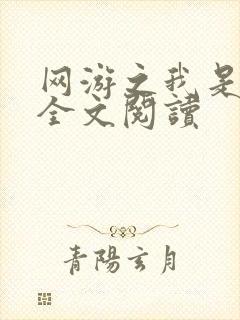 网游之我是
全文閱讀
青陽玄月